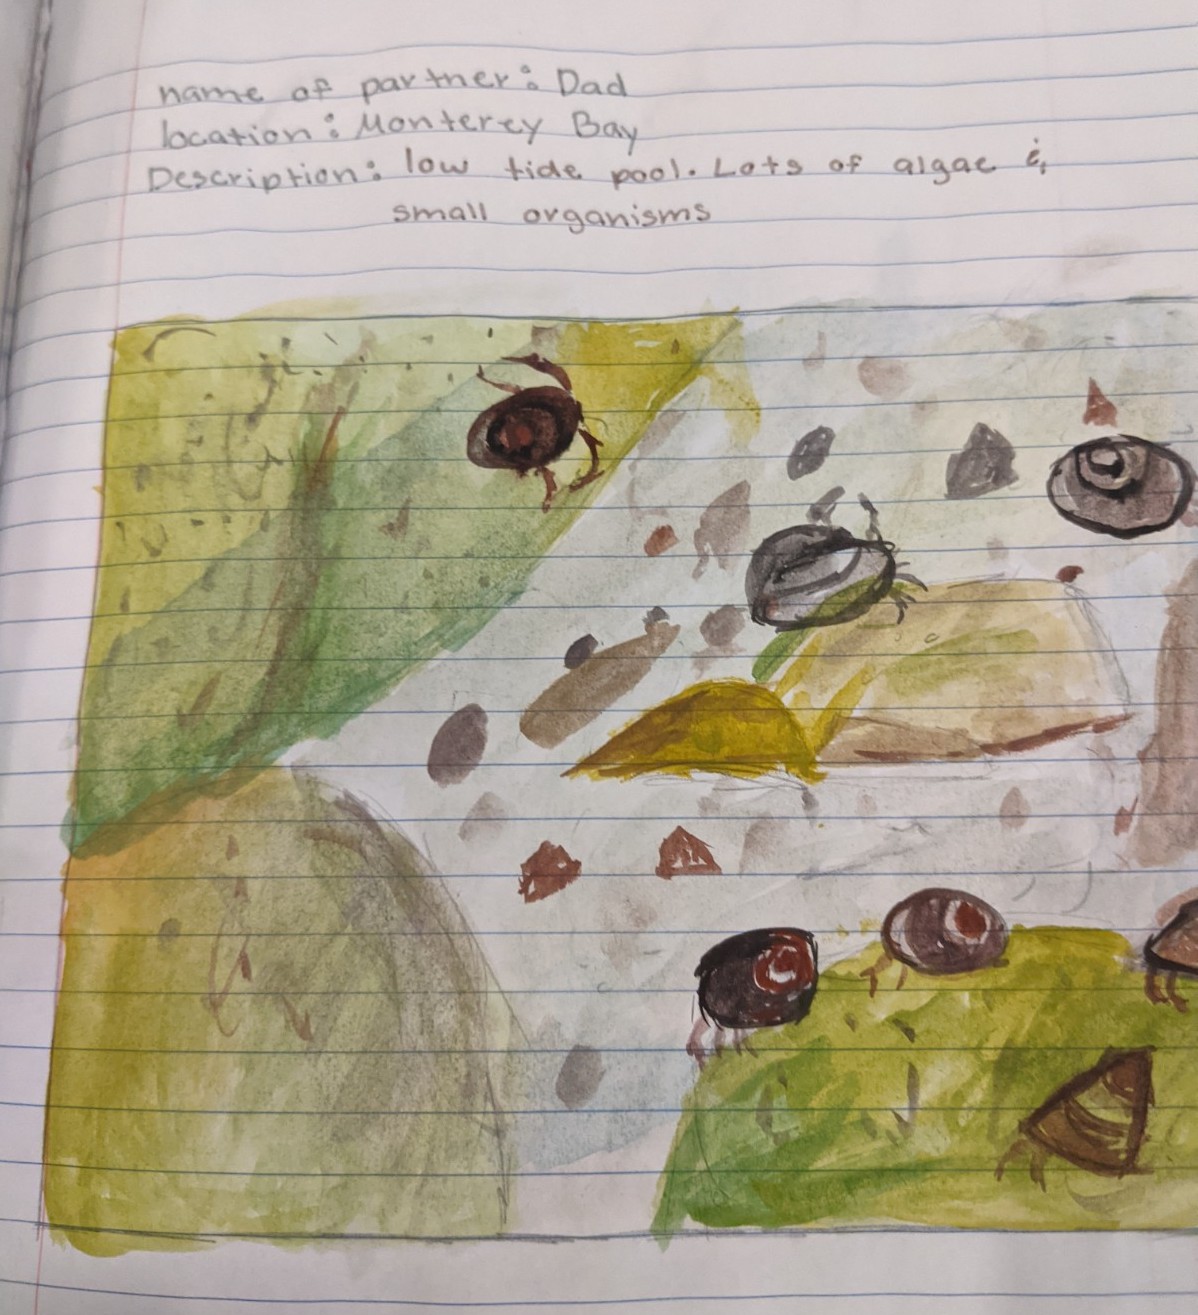 name of partner: Dad
location: Monterey Bay
Description: low tide pool. Lots of algae &
small organisms